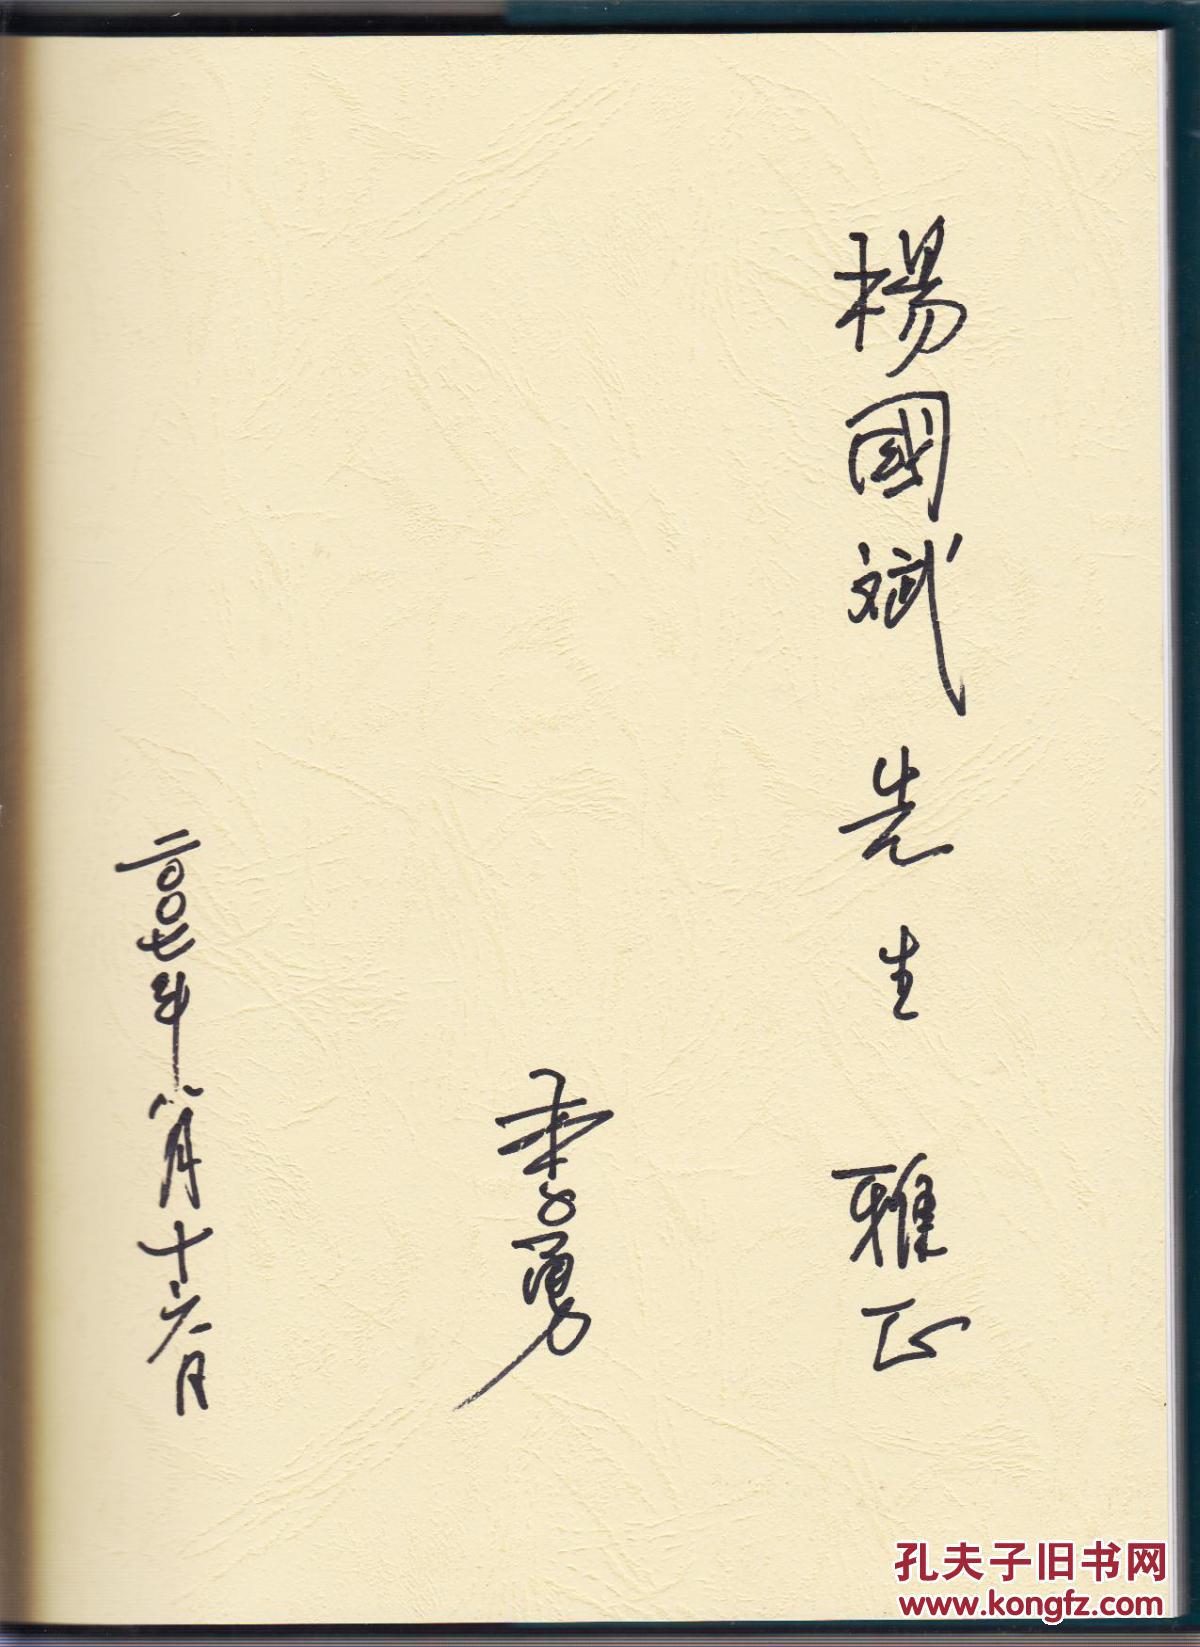 楊國斌先生 雅正
李勇
二〇〇七年八月十六日
孔夫子旧书网
www.kongfz.com